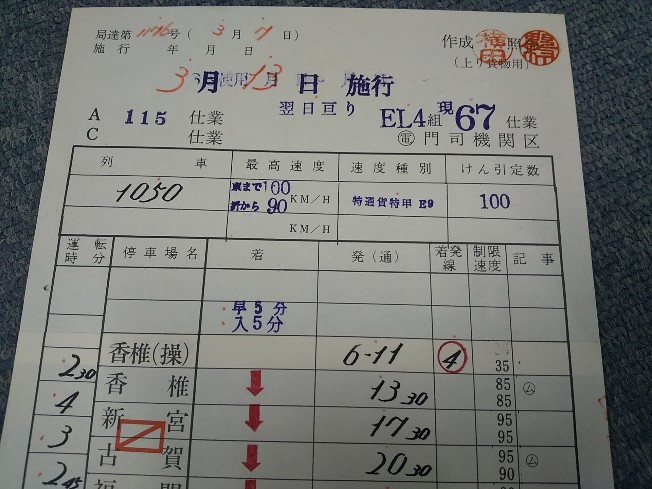 局達第 号 ( 3 月 7 日)
施行 年 月 日
作成 照
(上り貨物用)
3月13日 施行
翌日亘り
A 115 仕業
C 仕業
EL4組 現67 仕業
電 門司機関区
列車 最高速度 速度種別 けん引定数
1050 東まで100 折から90 KM/H 特通貨特甲 E9 100
KM/H
運転時分 停車場名 着 発(通) 着発線 制限速度 記事
早5分
入5分
香椎(操) 6-11 4 35
2 30
香椎 ↓ 13 30 85 85 ム
4
新宮 ↓ 17 30 95 95
3
古賀 ↓ 20 30 95 90 ム
2 45
福間